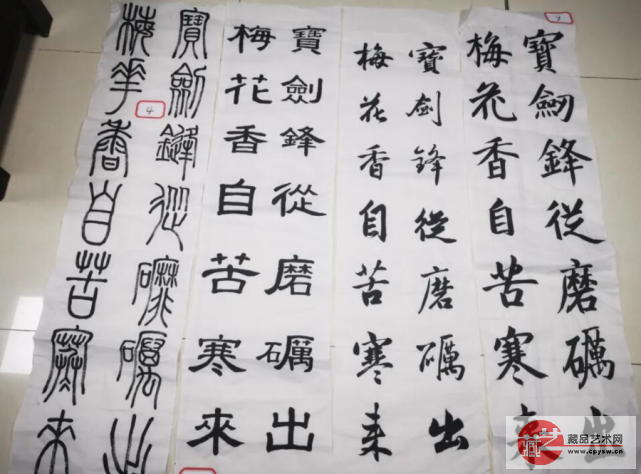 寶劍鋒從磨礪出
梅花香自苦寒來
7
寶劍鋒從磨礪出
梅花香自苦寒来
寶劍鋒從磨礪出
梅花香自苦寒來
寶劍鋒從磨礪出
梅花香自苦寒来
4
藏品艺术网
www.cpysw.cn